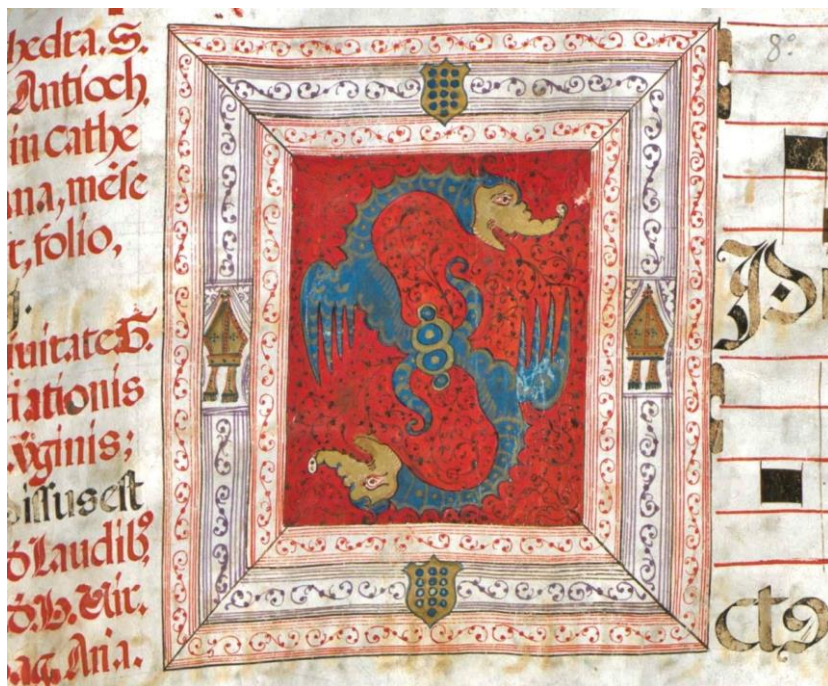 hedra. S.
Antioch,
in cathe
ana, mẽse
r, folio,
iuitate S.
iationis
Vginis;
Diffusa est
Laudib9
B. Vir.
Aña.
8º
P
cta